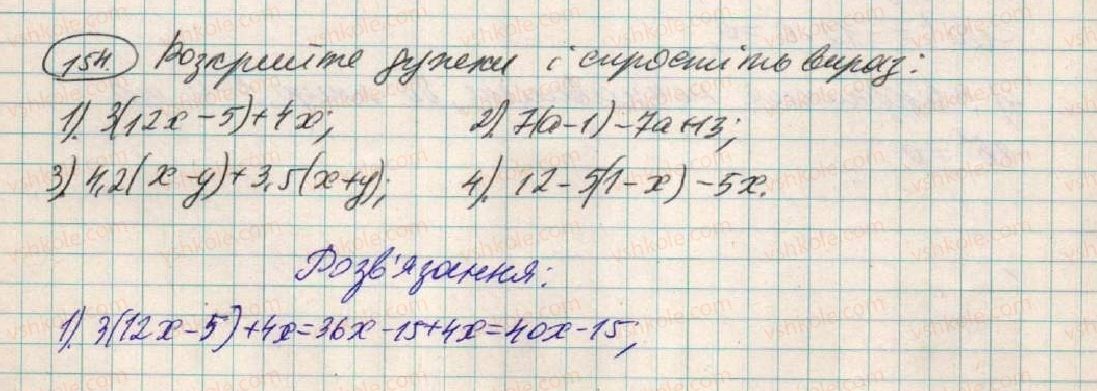 154. Розкрийте дужки і спростіть вираз:
1) 3(12x-5)+4x; 2) 7(a-1)-7a+13;
3) 4,2(x-y)+3,5(x+y); 4) 12-5(1-x)-5x.
Розв'язання:
1) 3(12x-5)+4x=36x-15+4x=40x-15;